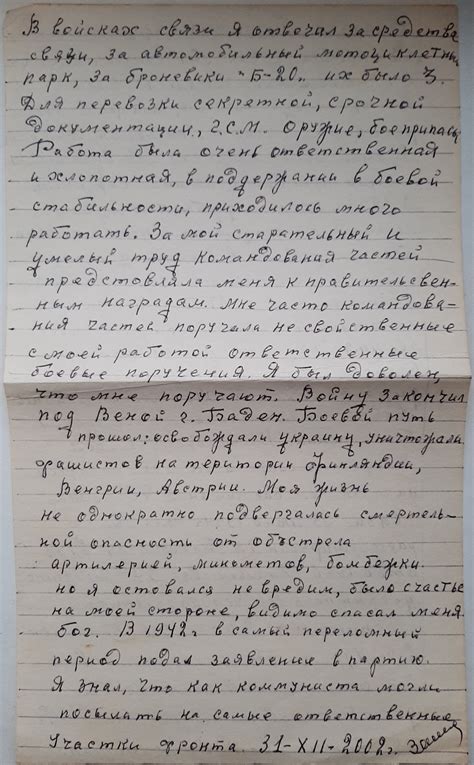 В войсках связи я отвочал за средства
связи, за автомобильный мотоциклетный
парк, за броневики "Б-20" их было 3.
Для перевозки секретной, срочной
документации, Г.С.М. оружие, боеприпасы
Работа была очень ответственная
и хлопотная, в поддержании в боевой
стабильности, приходилось много
работать. За мой старательный и
умелый труд командования частей
предстовляла меня к правительсвен-
ным наградам. Мне часто командова-
ния частей поручала не свойственные
с моей работой ответственные
боевые поручения. Я был доволен,
что мне поручают. Войну закончил
под Веной г. Баден. Боевой путь
прошол: освобождали украину, уничтожали
фашистов на територии Финляндии,
Венгрии, Австрии. Моя жизнь
не однократно подвергалась смертель-
ной опасности от обстрела
артилерией, минометов, бомбежки.
но я остовался не вредим, было счастье
на моей стороне, видимо спасал меня
бог. В 1942г в самый переломный
период подал заявление в партию.
Я знал, что как коммуниста могли
посылать на самые ответственные
Участки фронта. 31-XII-2002г.